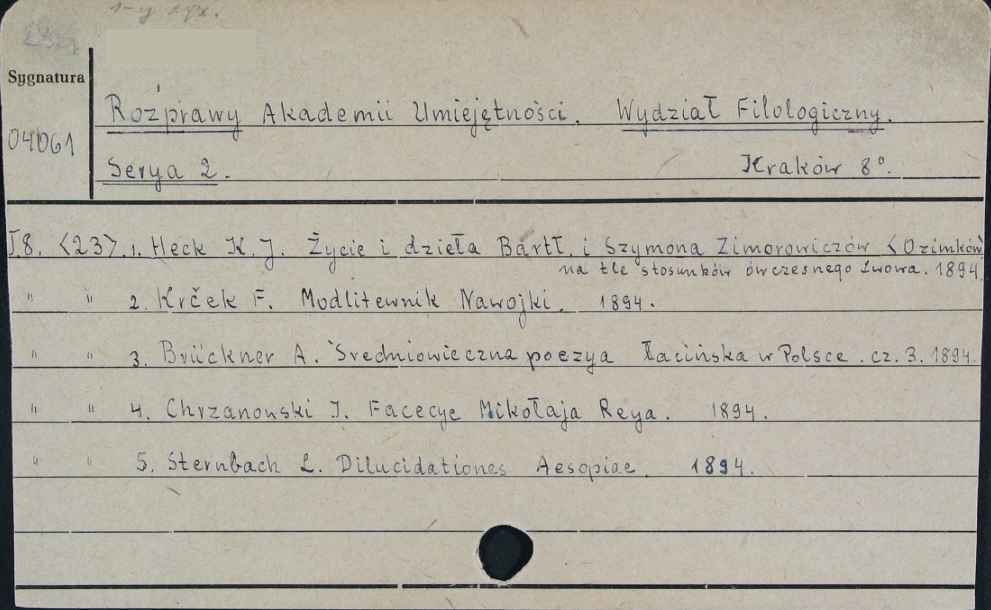 1-y egz.
Sygnatura
04061
Rozprawy Akademii Umiejętności. Wydział Filologiczny.
Serya 2. Kraków 8°.
T.8. <23>. 1. Heck K. J. Życie i dzieła Bartł. i Szymona Zimorowiczów <Ozimków>
na tle stosunków ówczesnego Lwowa. 1894.
" " 2. Krček F. Modlitewnik Nawojki. 1894.
" " 3. Brückner A. Średniowieczna poezya łacińska w Polsce. cz. 3. 1894.
" " 4. Chrzanowski I. Facecye Mikołaja Reya. 1894.
" " 5. Sternbach L. Dilucidationes Aesopiae. 1894.